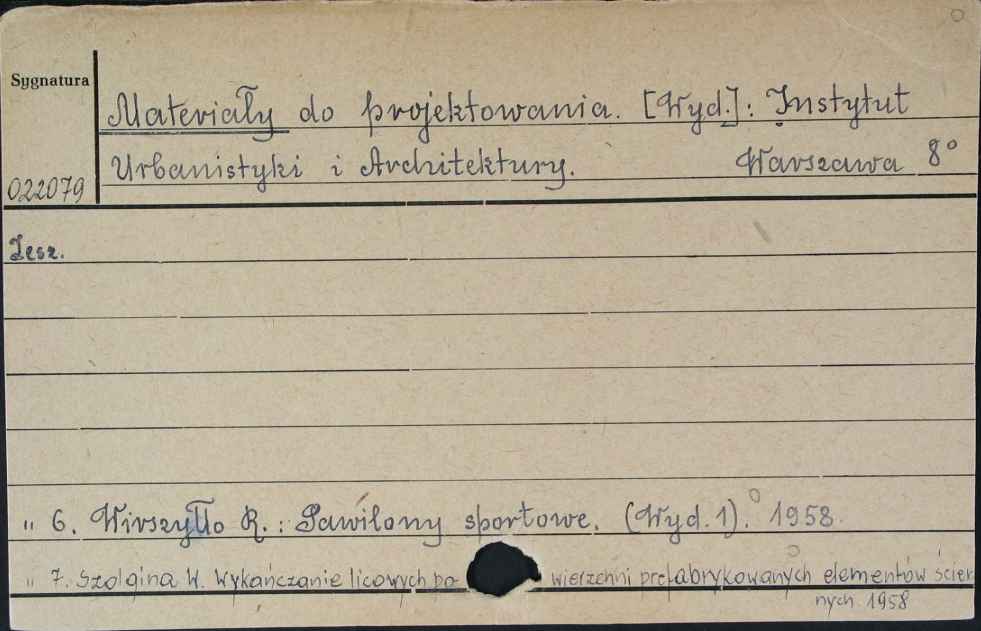 Sygnatura
Materiały do projektowania. [Wyd.]: Instytut
Urbanistyki i Architektury. Warszawa 8°
022079
Zesz.
" 6. Wirszyłło R.: Pawilony sportowe. (Wyd. 1). 1958.
" 7. Szolgina W. Wykańczanie licowych po wierzchni prefabrykowanych elementów ścien
nych. 1958